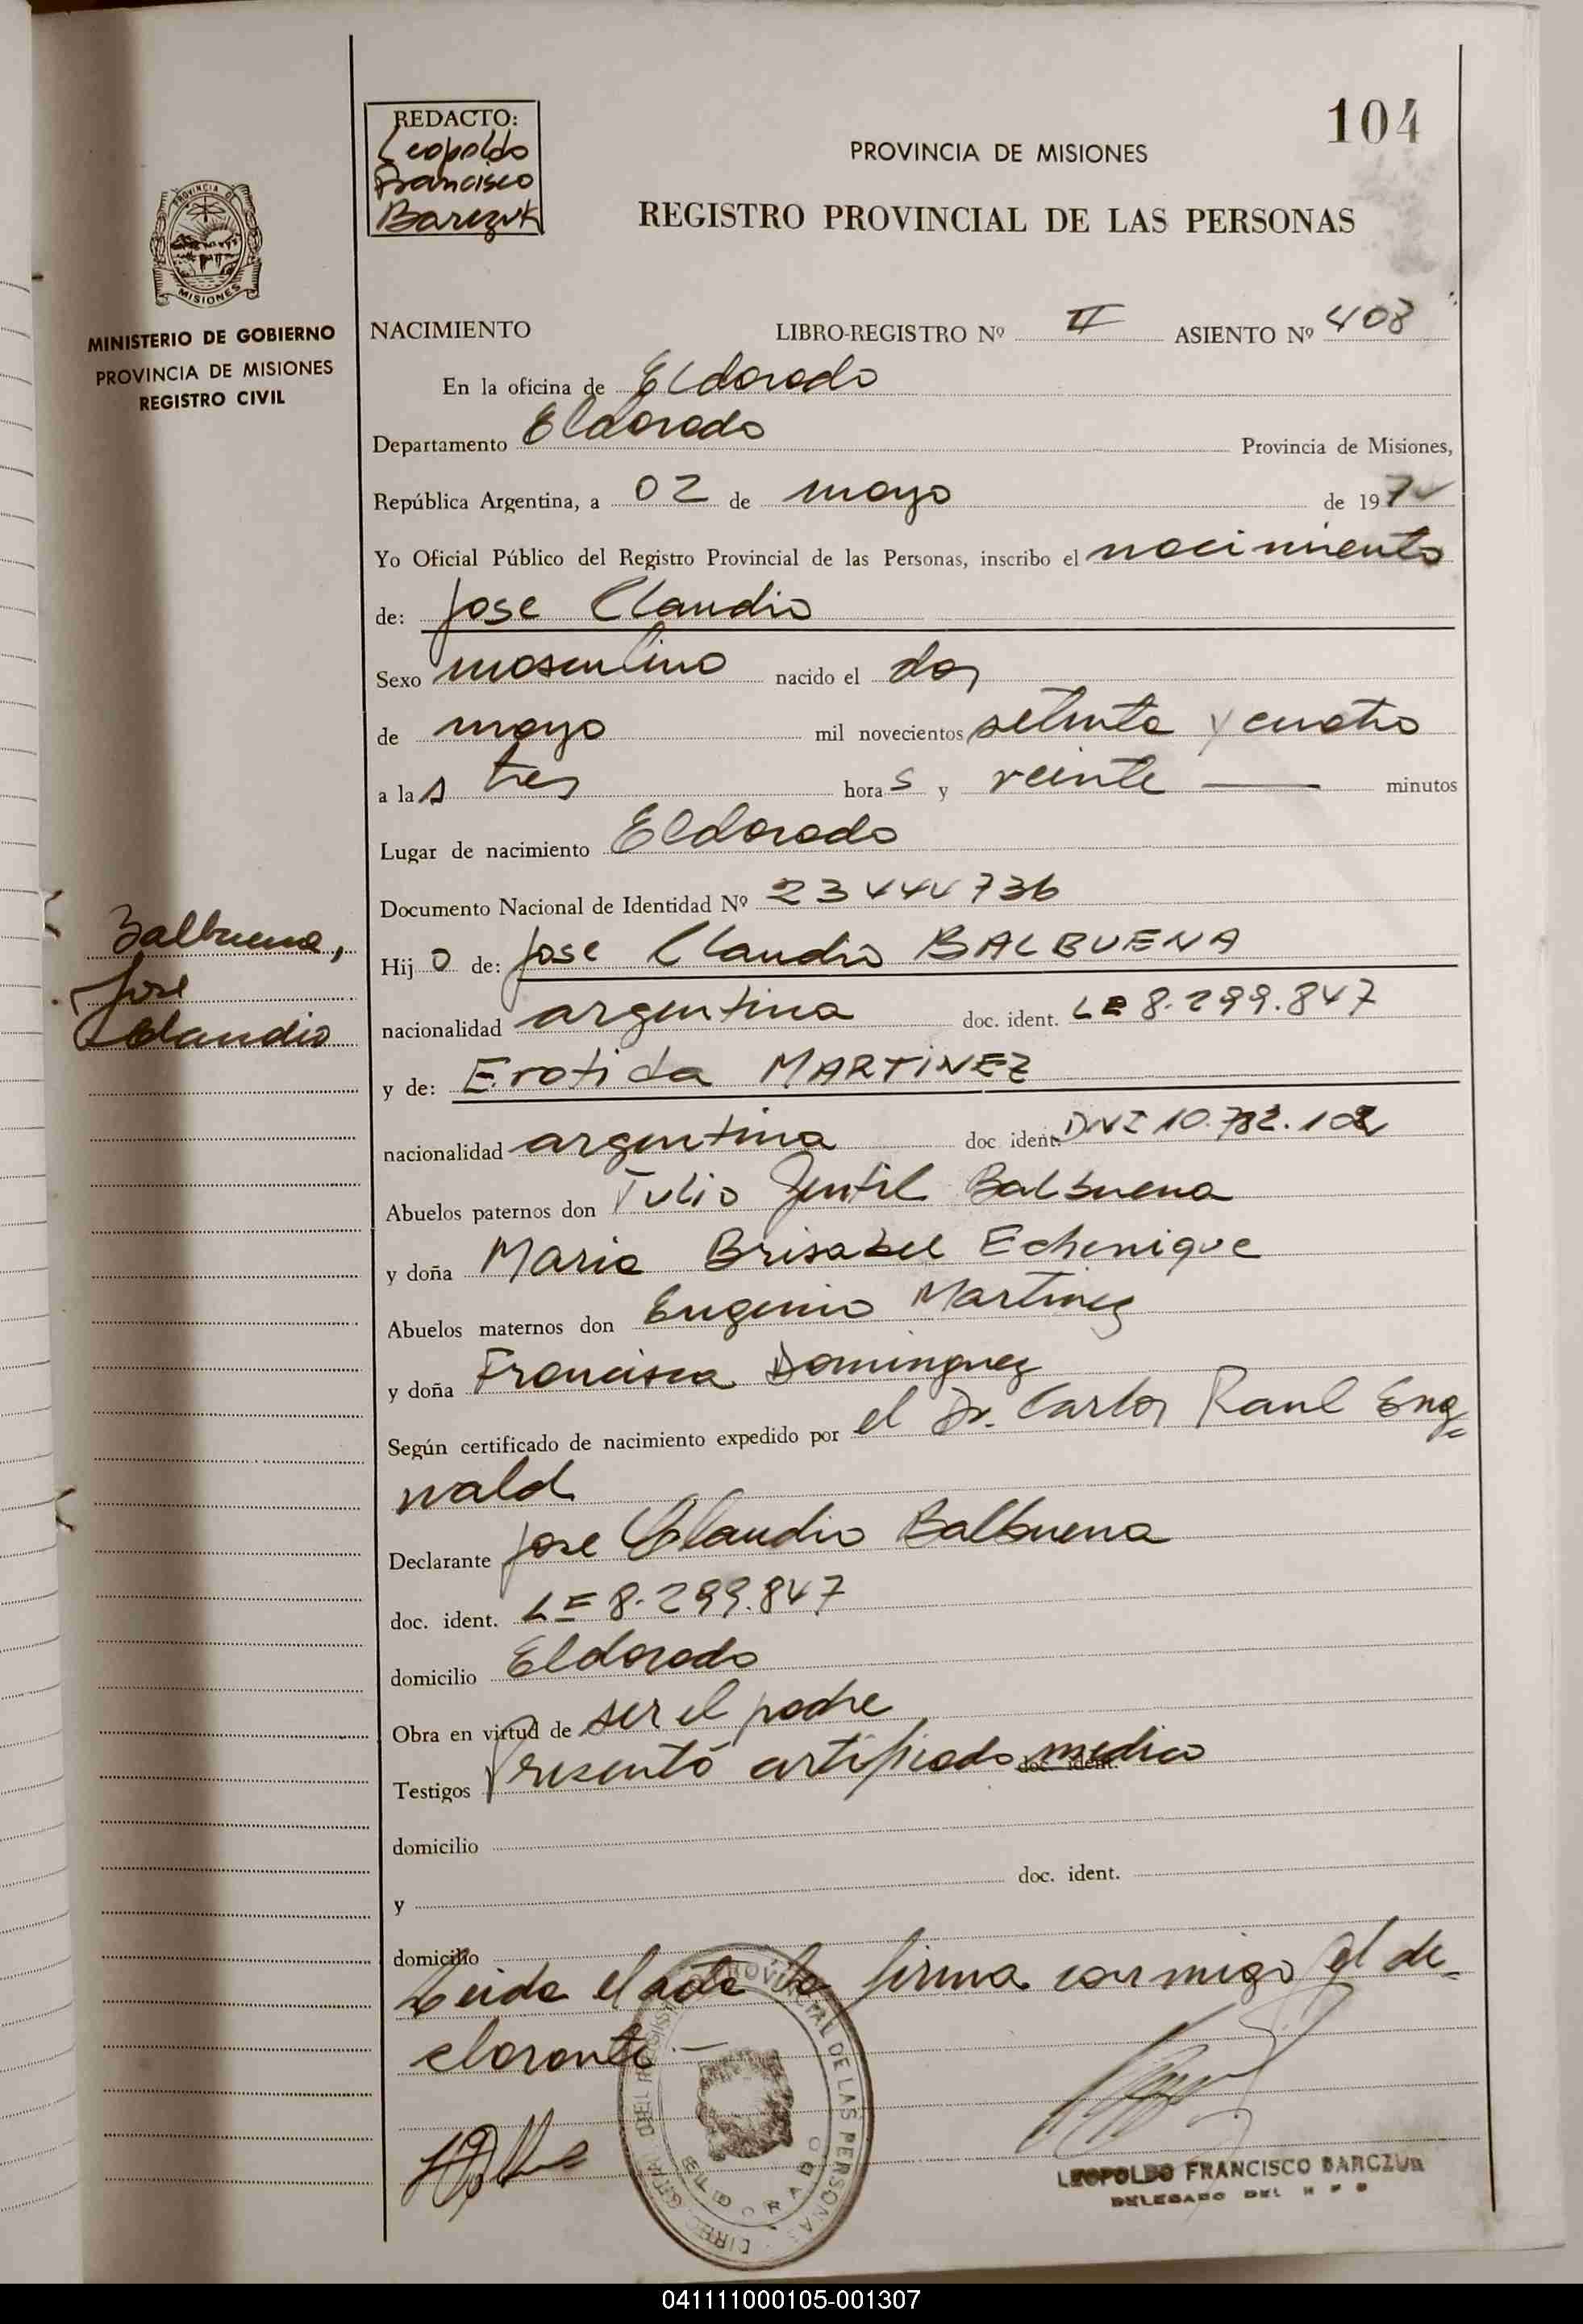 104
REDACTO:
Leopoldo
Francisco
Barczuk
PROVINCIA DE MISIONES
REGISTRO PROVINCIAL DE LAS PERSONAS
PROVINCIA DE
MISIONES
MINISTERIO DE GOBIERNO
PROVINCIA DE MISIONES
REGISTRO CIVIL
NACIMIENTO LIBRO-REGISTRO Nº II ASIENTO Nº 408
En la oficina de Eldorado
Departamento Eldorado Provincia de Misiones,
República Argentina, a 02 de mayo de 1974
Yo Oficial Público del Registro Provincial de las Personas, inscribo el nacimiento
de: Jose Claudio
Sexo masculino nacido el dos
de mayo mil novecientos setenta y cuatro
a las tres horas y veinte — minutos
Lugar de nacimiento Eldorado
Documento Nacional de Identidad Nº 23444736
Balbuena,
Jose
Claudio
Hijo de: Jose Claudio BALBUENA
nacionalidad argentina doc. ident. LE 8.299.847
y de: Erotida MARTINEZ
nacionalidad argentina doc ident. DNI 10.782.102
Abuelos paternos don Tulio Gentil Balbuena
y doña Maria Brisabel Echenique
Abuelos maternos don Eugenio Martinez
y doña Francisca Dominguez
Según certificado de nacimiento expedido por el Dr. Carlos Raul Enge
wald
Declarante Jose Claudio Balbuena
doc. ident. LE 8.299.847
domicilio Eldorado
Obra en virtud de ser el padre
Testigos Presentó certificado medico doc. ident.
domicilio
y doc. ident.
domicilio
Leida el acta la firma conmigo el de-
clarante.—
DIREC. GRAL. DEL REGISTRO PROVINCIAL DE LAS PERSONAS
ELDORADO
LEOPOLDO FRANCISCO BARCZUK
DELEGADO DEL R P P
041111000105-001307